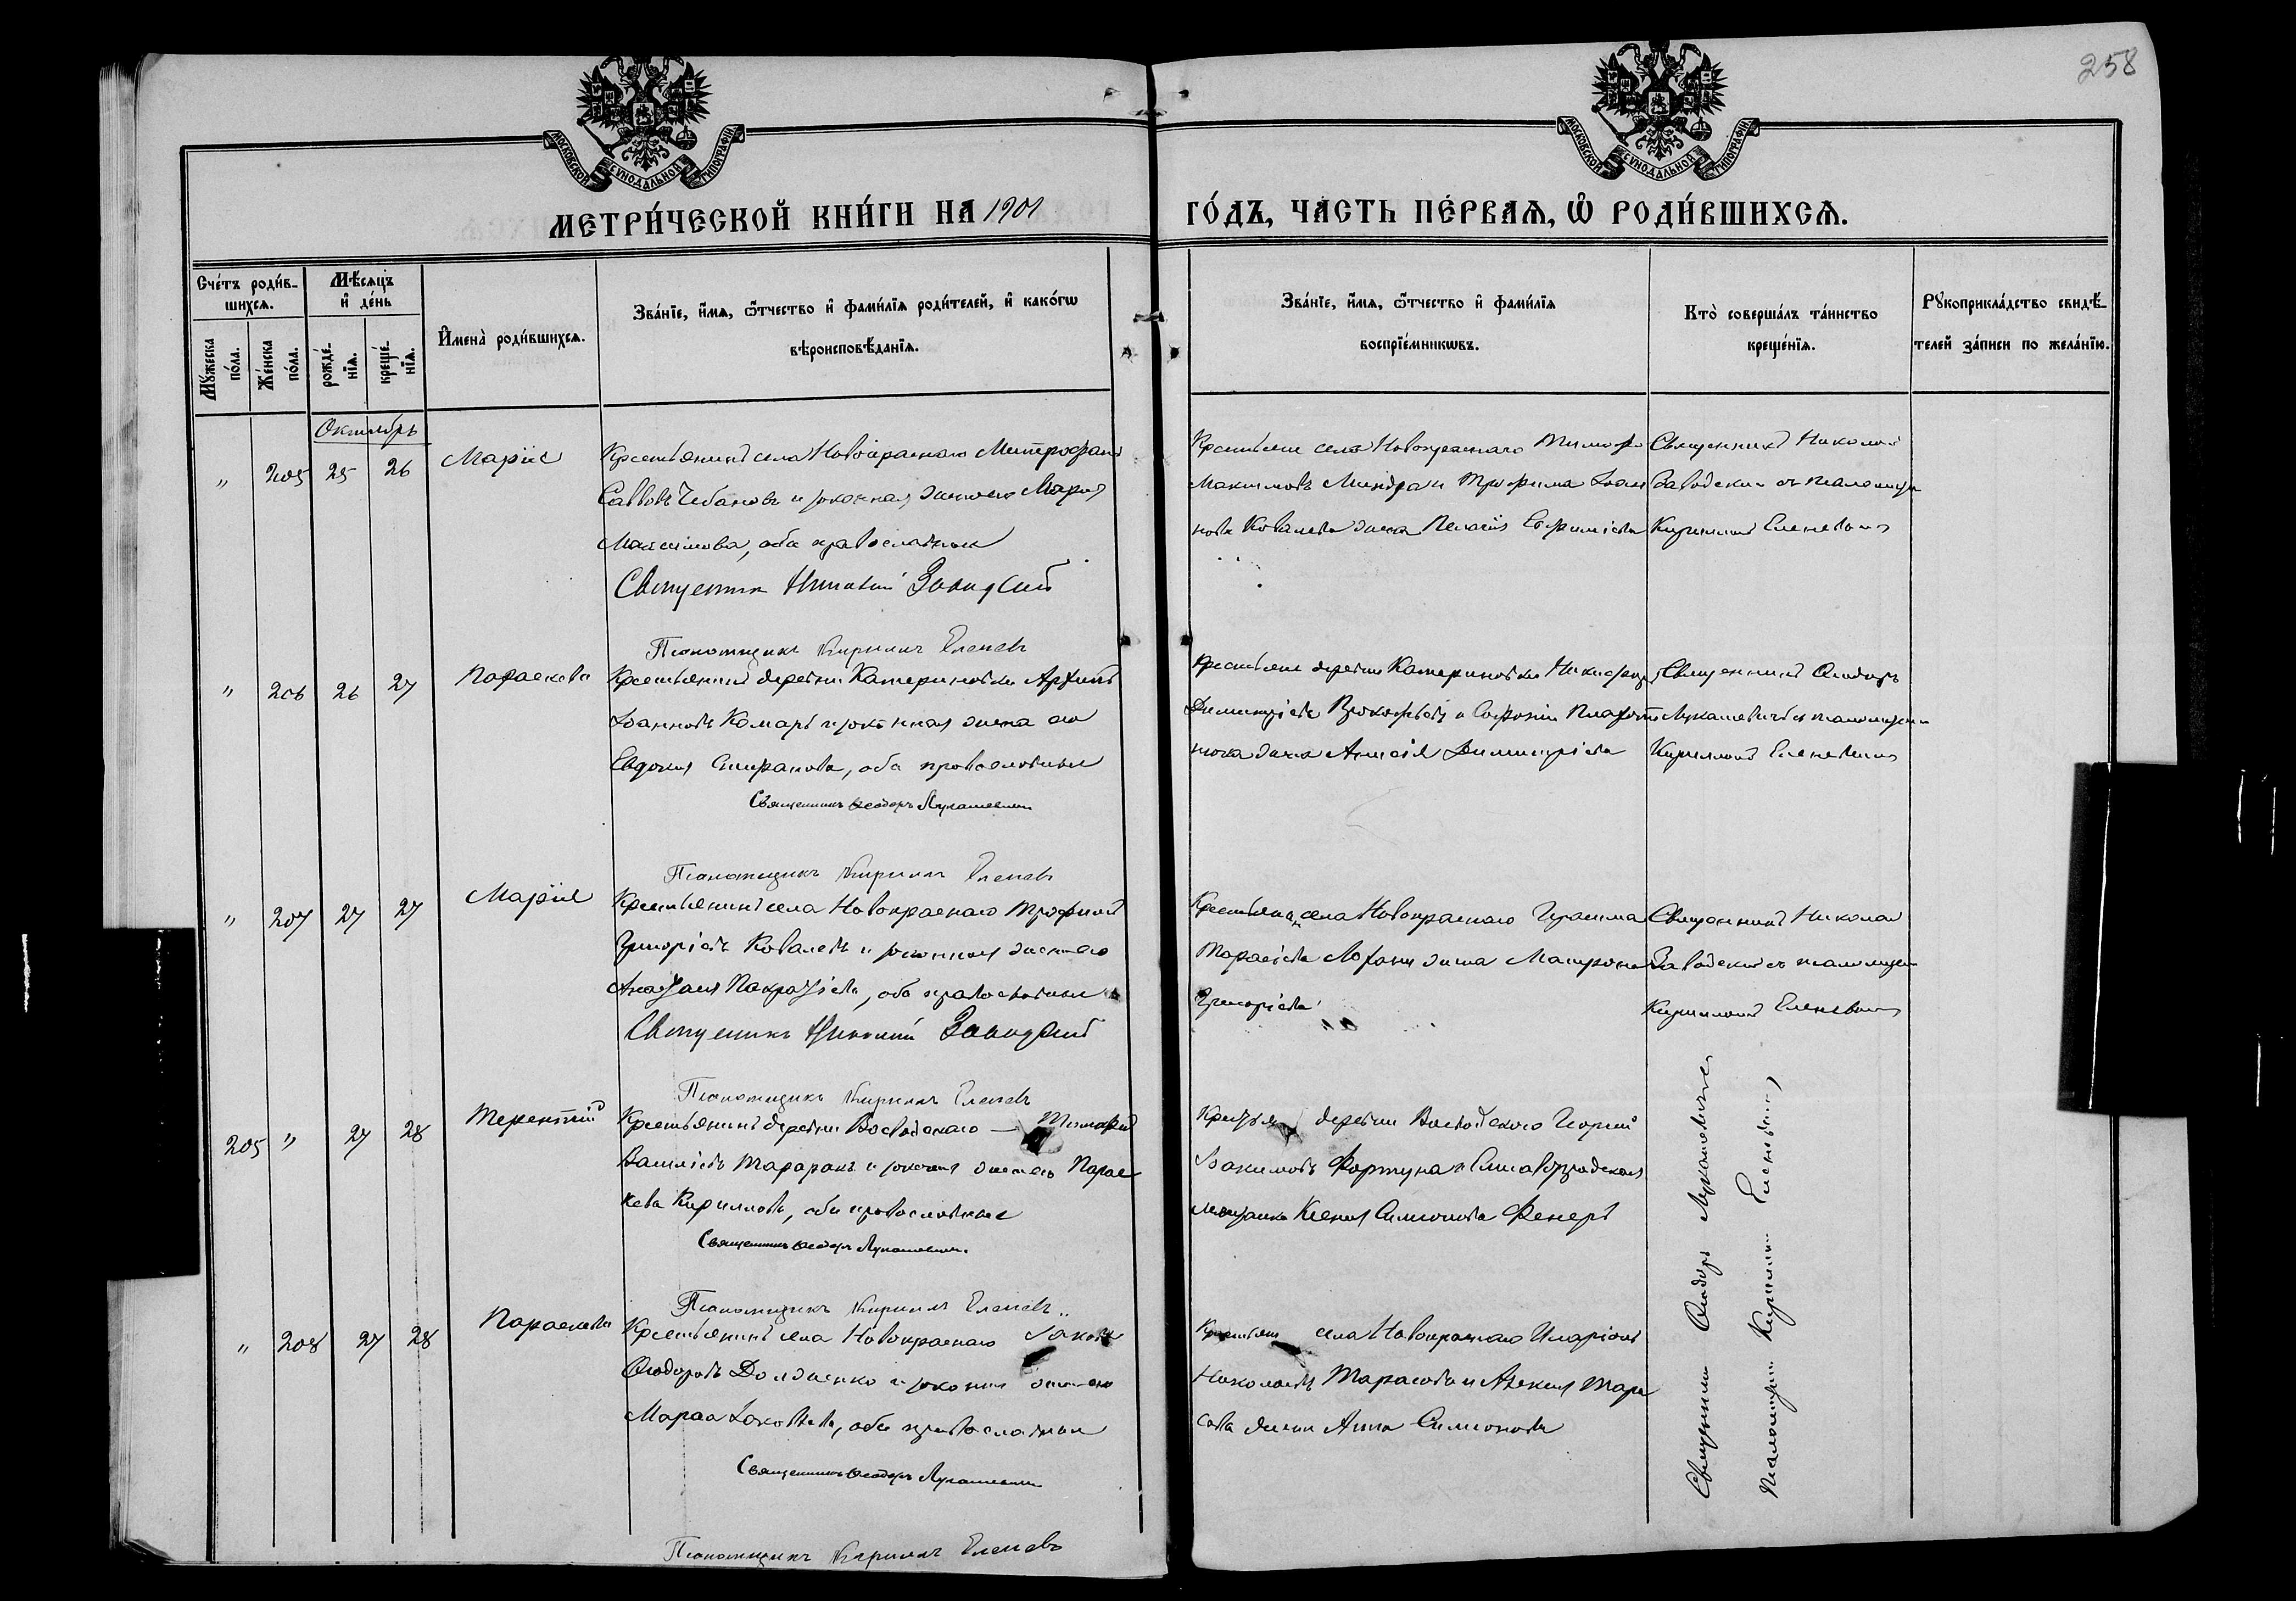 258
МОСКОВСКОЙ СѴНОДАЛЬНОЙ ТИПОГРАФІИ
МОСКОВСКОЙ СѴНОДАЛЬНОЙ ТИПОГРАФІИ
МЕТРИ́ЧЕСКОЙ КНИ́ГИ НА 1901
ГО́ДЪ, ЧА́СТЬ ПЕ́РВАѦ, Ѽ РОДИ́ВШИХСѦ.
Сче́тъ роди́в-
шихсѧ.
Мꙋ́жеска
по́ла.
Же́нска
по́ла.
Мѣ́сѧцъ
и҆ де́нь
рожде́-
нїѧ.
креще́-
нїѧ.
И҆мена̀ роди́вшихсѧ.
Зва́нїе, и҆́мѧ, ѻ҆́тчество и҆ фами́лїѧ роди́телей, и҆ како́гѡ
вѣроисповѣ́данїѧ.
Зва́нїе, и҆́мѧ, ѻ҆́тчество и҆ фами́лїѧ
воспрїе́мникѡвъ.
Кто̀ соверша́лъ та́инство
креще́нїѧ.
Рꙋкоприкла́дство свидѣ́-
телей за́писи по жела́нїю.
Октябрь
" 205 25 26 Марія
Крестьянинъ села Новокраснаго Митрофанъ
Саввовъ Чебановъ и законная жена его Марія
Максимова, оба православные
Священникъ Николай Заводскій
Псаломщикъ Кириллъ Еленевъ
Крестьяне села Новокраснаго
Максимовъ и Трофима Іоан
нова Ковалева жена Пелагія Евфиміева
Священникъ Николай
Заводскій съ псаломщи
Кирилломъ Еленевымъ
" 206 26 27 Параскева
Крестьянинъ деревни Катериновки
Іоанновъ Комаръ и законная жена его
Евдокія Стефанова, оба православные
Священникъ Ѳеодоръ Лукашевичъ
Псаломщикъ Кириллъ Еленевъ
Крестьяне деревни Катериновки Никифоръ
Димитріевъ и Софронія
жена Анисія Димитріева
Священникъ Ѳеодоръ
Лукашевичъ съ псаломщи
Кирилломъ Еленевымъ
" 207 27 27 Марія
Крестьянинъ села Новокраснаго Трофимъ
Григоріевъ Ковалевъ и законная жена его
Анаѳасія, оба православные
Священникъ Николай Заводскій
Псаломщикъ Кириллъ Еленевъ
Крестьяне села Новокраснаго Герасима
Тарасіева жена Матрона
Григоріева
Священникъ Николай
Заводскій съ псаломщи
Кирилломъ Еленевымъ
205 " 27 28 Терентій
Крестьянинъ деревни Воеводскаго — Тимофей
Василіевъ и законная жена его Парас
кева Кириллова, оба православные
Священникъ Ѳеодоръ Лукашевичъ
Псаломщикъ Кириллъ Еленевъ
деревни Воеводского Георгій
Іоакимовъ Фортуна и Елисаветградская
мѣщанка Ксенія Симеонова
" 208 27 28 Параскева
Крестьянинъ села Новокраснаго Іаковъ
Ѳеодоровъ Долженко и законная жена его
Марѳа Іаковлева, оба православные
Священникъ Ѳеодоръ Лукашевичъ
Псаломщикъ Кириллъ Еленевъ
Крестьяне села Новокраснаго Иларіонъ
Николаевъ Тарасовъ и Тара
сова жена Анна Симеонова
Священникъ Ѳеодоръ Лукашевичъ
Псаломщикъ Кириллъ Еленевъ